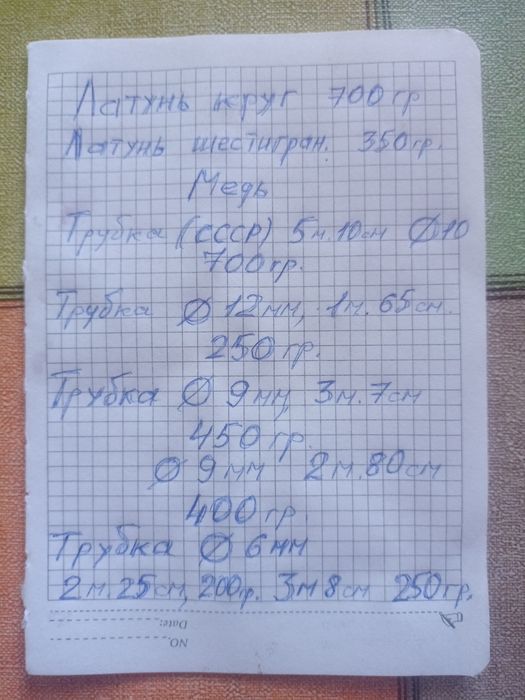 Латунь круг 700гр
Латунь шестигран. 350гр.
Медь
Трубка (СССР) 5м.10см Ø10
700гр.
Трубка Ø 12мм, 1м.65см.
250гр.
Трубка Ø 9мм, 3м.7см
450гр.
Ø 9мм 2м.80см
400гр.
Трубка Ø 6мм
2м.25см, 200гр. 3м8см 250гр.
Date:
NO.